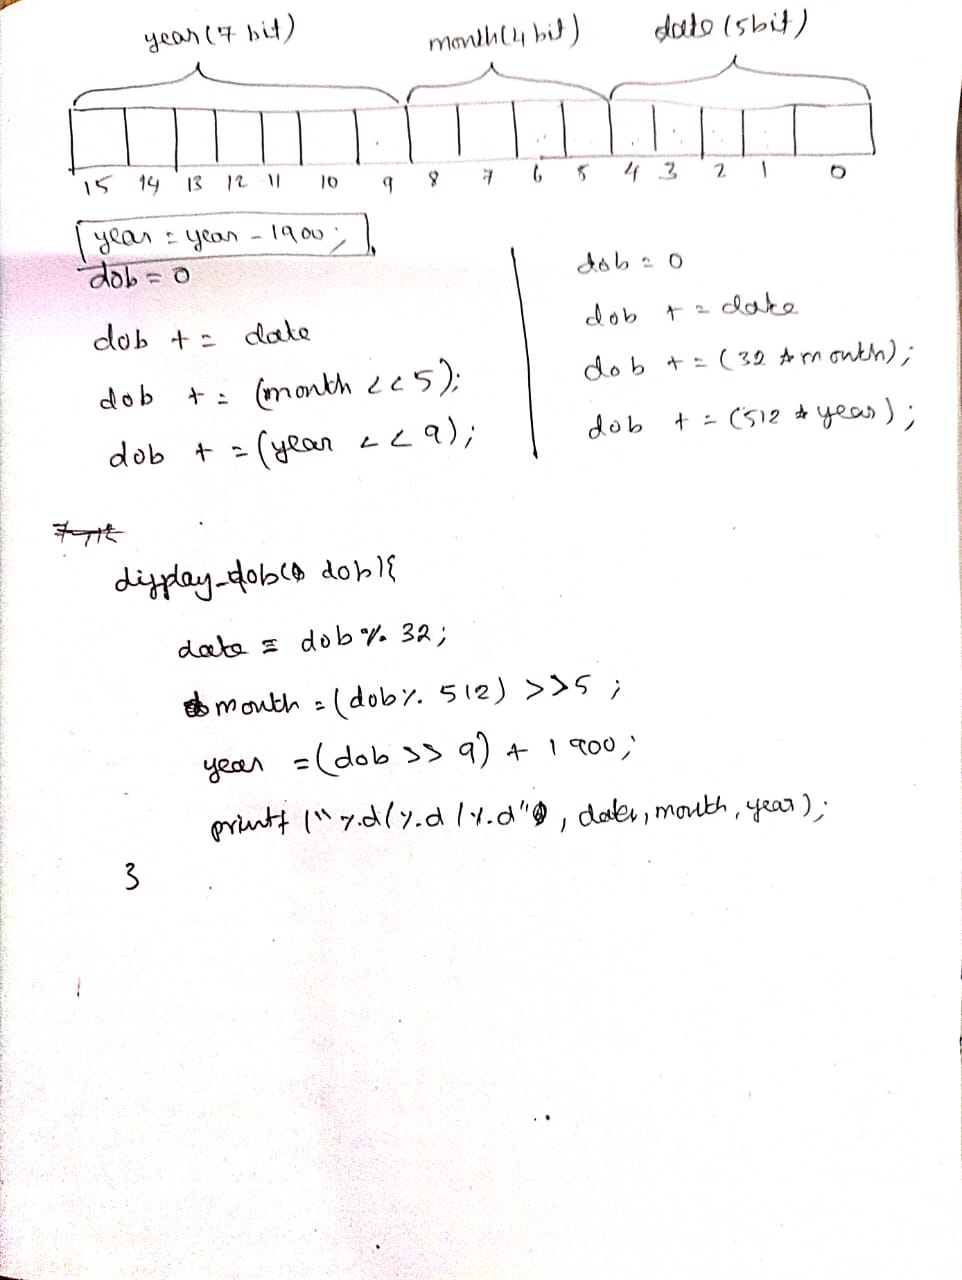 year (7 bit) month (4 bit) date (5bit)
15 14 13 12 11 10 9 8 7 6 5 4 3 2 1 0
year = year - 1900;
dob = 0
dob += date
dob += (month <<5);
dob += (year << 9);
dob = 0
dob += date
dob += (32 * month);
dob += (512 * year);
display_dob( dob){
date = dob % 32;
month = (dob % 512) >>5 ;
year = (dob >> 9) + 1900;
printf ("%d/%d/%d", date, month, year);
}